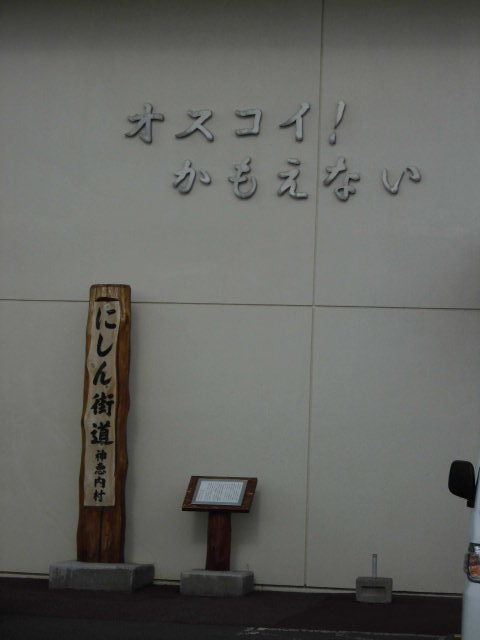 オスコイ!
かもえない
にしん街道
神恵内村